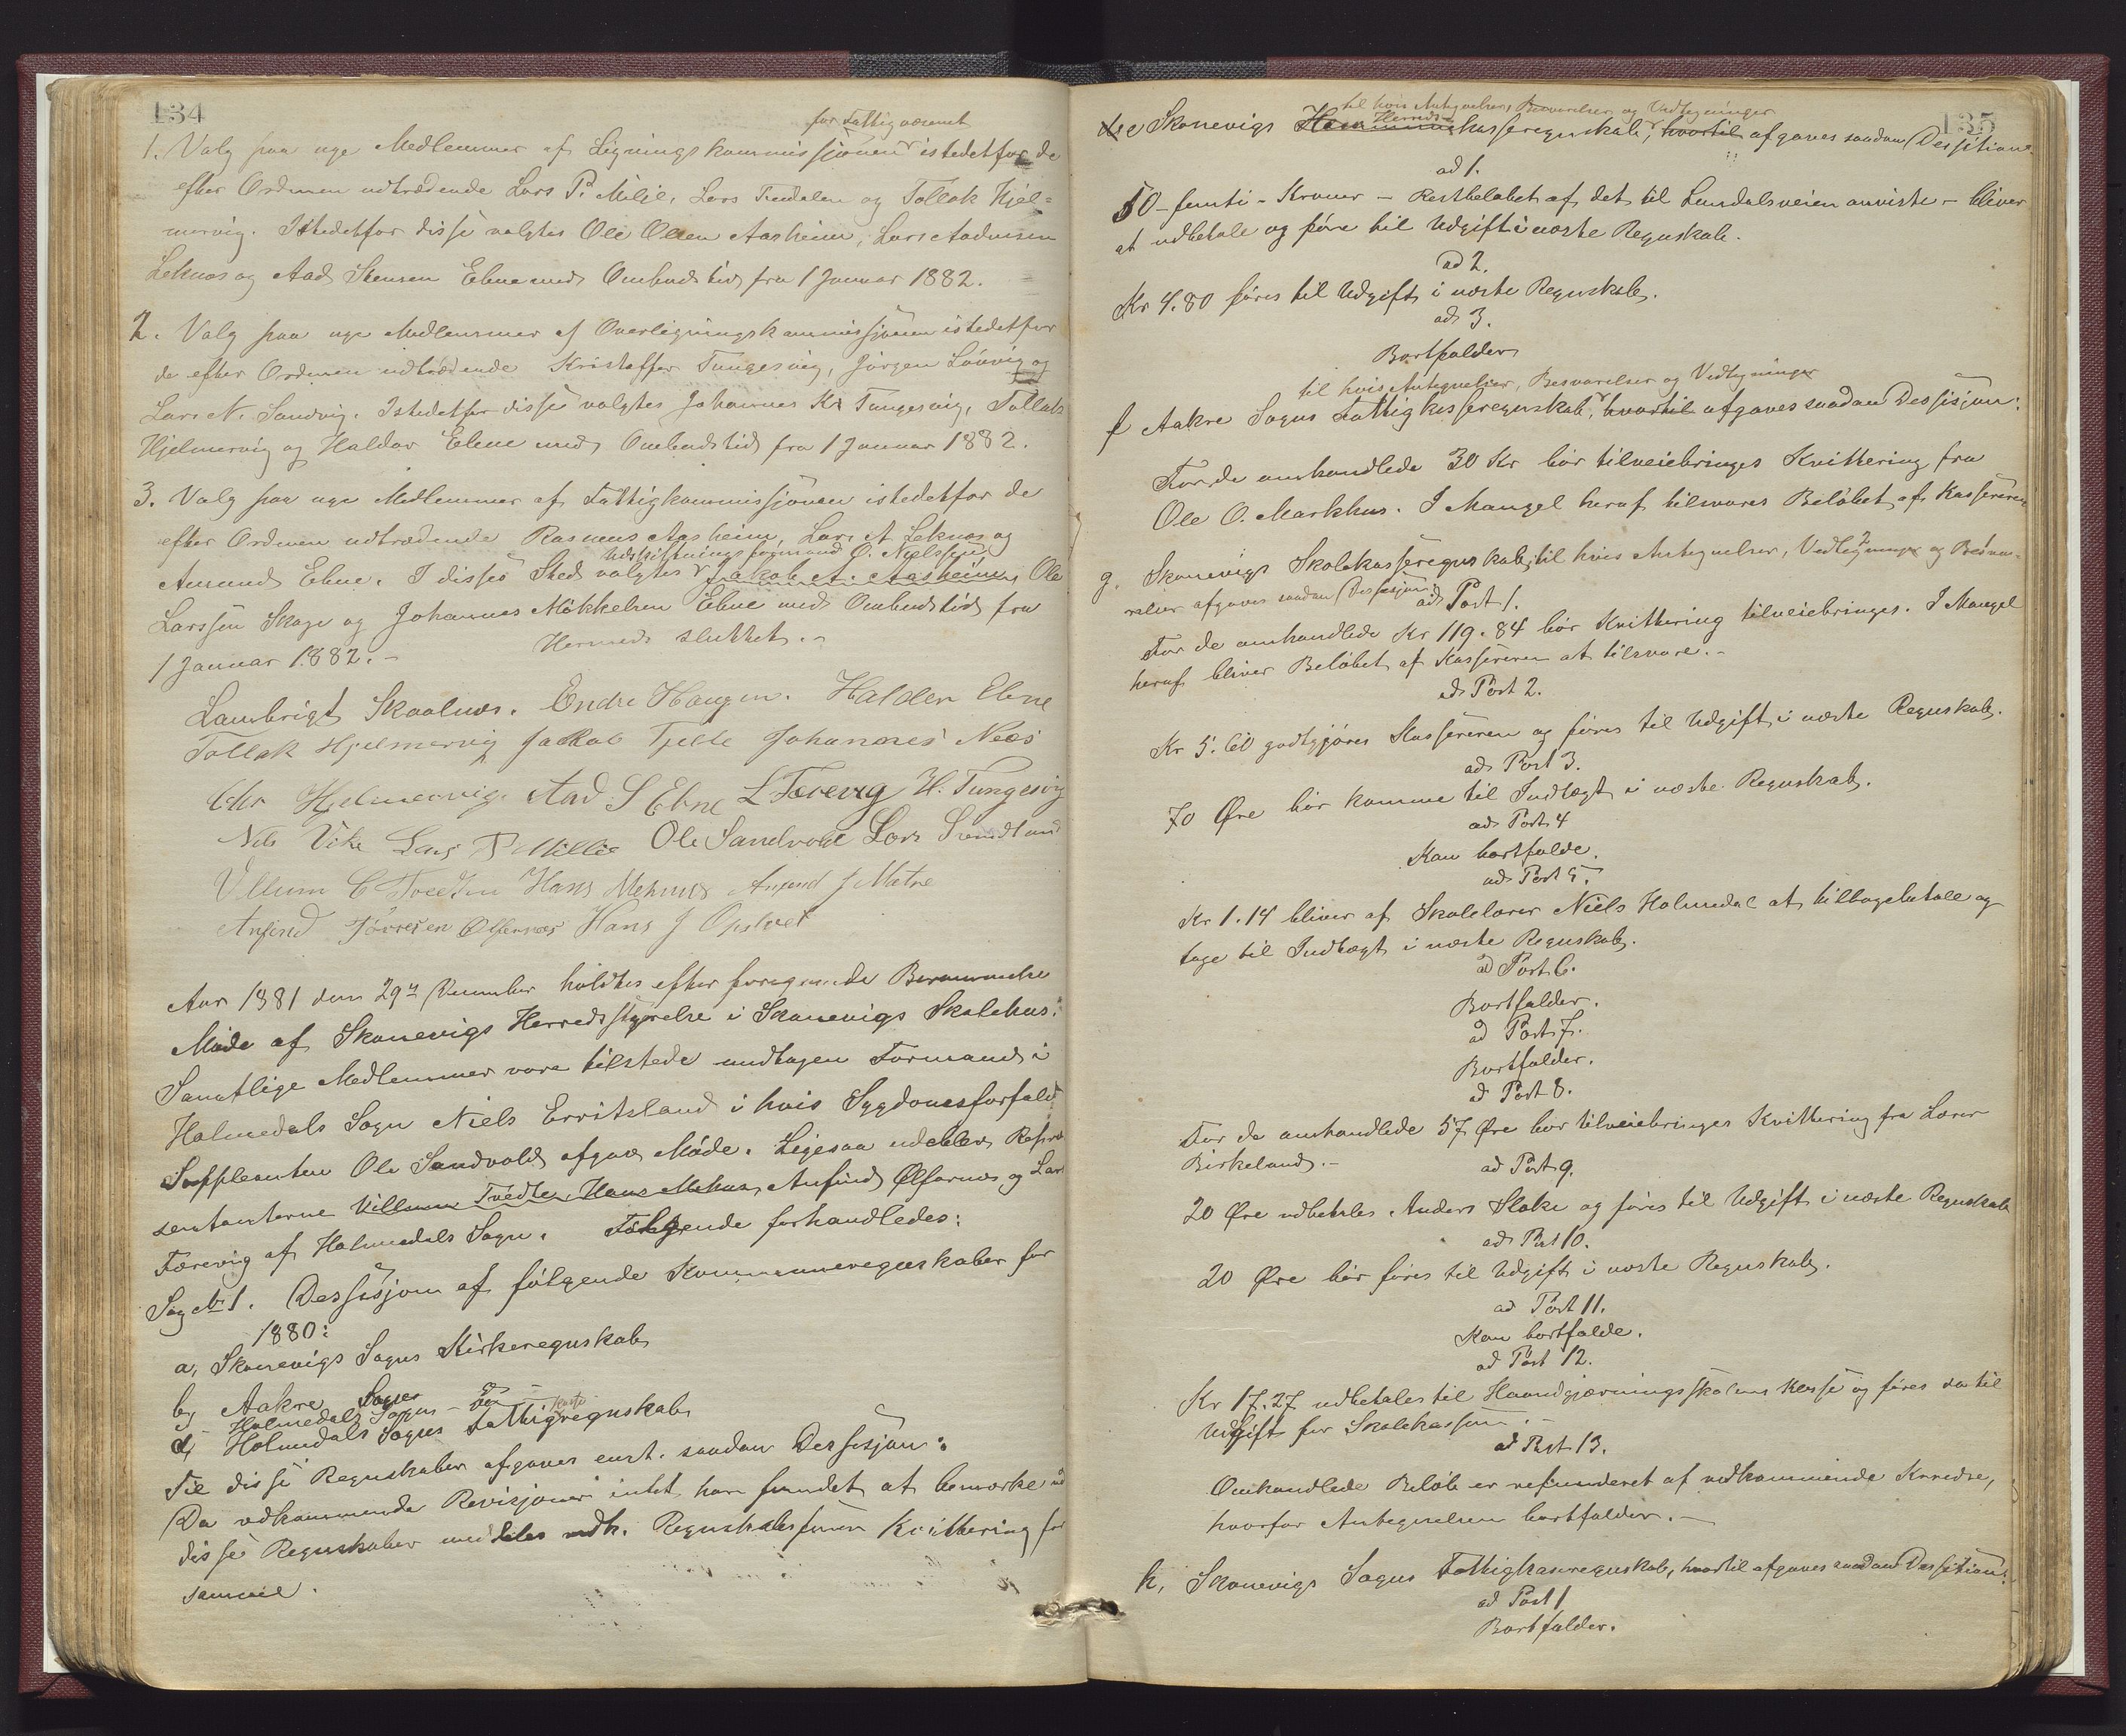 134
for Fattigvæsenet
1. Valg paa nye Medlemmer af Ligningskommissjonen istedetfor de
efter Ordenen udtrædende Lars P. Milje, Lars Tindalen og Tollak Hjel=
mervig. Istedetfor disse valgtes Ole Olsen Aasheim, Lars Aadnesen
Leknæs og Aad Stensen Ebne med Ombudstid fra 1 Januar 1882.
2. Valg paa nye Medlemmer af Overligningskommissjonen istedetfor
de efter Ordenen udtrædende Kristoffer Tungesvig, Jørgen Løvvig og
Lars N. Sandvig. Istedetfor disse valgtes Johannes K. Tungesvig, Tollak
Hjelmervig og Haldor Ebne med Ombudstid fra 1 Januar 1882.
3. Valg paa nye Medlemmer af Fattigkommissjonen istedetfor de
efter Ordenen udtrædende Rasmus Aasheim, Lars A. Leknæs og
Udskiftningsformand O. Nielssen,
Amund Ebne. I disses Sted valgtes Jakob A. Aasheim, Ole
Larssen Skage og Johannes Mikkelsen Ebne med Ombudstid fra
1 Januar 1882. - Hermed sluttet. -
Lambrigt Skaalnæs. Endre Haugen. Haldor Ebne
Tollak Hjelmervig Jakob Tjelle Johannes Næs
Chr Hjelmervig. Aad S Ebne L Færevig H. Tungesvig
Nils Vike Lars P. Millie Ole Sandvold Lars Svendland
Villum C Tvedten Hans Mehuus Anfind J Matre
Anfind Tørresen Ølfernæs Hans J Opstvet
Aar 1881 den 29de December holdtes efter foregaaende Berammelse
Møde af Skonevigs Herredsstyrelse i Skonevigs Skolehus.
Samtlige Medlemmer vare tilstede undtagen Formand i
Holmedals Sogn Niels Erritsland i hvis Sygdomsforfald
Suppleanten Ole Sandvold afgav Møde. Ligesaa udeblev Repræ
sentanterne Villum Tvedte, Hans Mehus, Anfind Ølfarnæs og Lars
Færevig af Holmedals Sogn. Følgende forhandledes:
Sag No 1. Dessisjon af følgende Kommuneregnskaber for
1880:
a, Skonevigs Sogns Kirkeregnskab
b, Aakre Sogns
c, Holmedals Sogns - Do -
kasse
d, Holmedals Sogns Fattigregnskab
Til disse Regnskaber afgaves enst. saadan Dessisjon:
Da vedkommende Revisjoner intet har fundet at bemærke ved
disse Regnskaber meddeles vedk. Regnskabsfører Kvittering for
samme.
135
til hvis Antegnelser, Besvarelser og Vedtegninger
Herreds-
e Skonevigs Kommunekasseregnskab, hvortil afgaves saadan Dessition:
ad 1.
50 - femti - Kroner - Restbeløbet af det til Lundalsveien anviste - bliver
at udbetale og føre til Udgift i næste Regnskab.
ad 2.
Kr 4.80 føres til Udgift i næste Regnskab.
ad 3.
Bortfalder
til hvis Antegnelser, Besvarelser og Vedtegninger
f Aakre Sogns Fattigkasseregnskab, hvortil afgaves saadan Dessisjon:
For de omhandlede 30 Kr bør tilveiebringes Kvittering fra
Ole O. Markhus. I Mangel heraf tilsvares Beløbet af Kassereren
g. Skonevigs Skolekasseregnskab, til hvis Antegnelser, Vedtegninger og Besva-
relser afgaves saadan Dessisjon:
ad Post 1.
For de omhandlede Kr 119.84 bør Kvittering tilveiebringes. I Mangel
heraf bliver Beløbet af Kassereren at tilsvare. -
ad Post 2.
Kr 5.60 godtgjøres Kassereren og føres til Udgift i næste Regnskab.
ad Post 3.
70 Øre bør komme til Indtægt i næste Regnskab.
ad Post 4
Kan bortfalde.
ad Post 5.
Kr 1.14 bliver af Skolelærer Niels Holmedal at tilbagebetale og
tage til Indtægt i næste Regnskab.
ad Post 6.
Bortfalder.
ad Post 7.
Bortfalder.
ad Post 8.
For de omhandlede 57 Øre bør tilveiebringes Kvittering fra Lærer
Birkeland. -
ad Post 9.
20 Øre udbetales Anders Slake og føres til Udgift i næste Regnskab
ad Post 10.
20 Øre bør føres til Udgift i næste Regnskab.
ad Post 11.
Kan bortfalde.
ad Post 12.
Kr 17.27 udbetales til Haandgjerningsskolens Kasse og føres da til
Udgift for Skolekassen. -
ad Post 13.
Omhandlede Beløb er refunderet af vedkommende Kredse,
hvorfor Antegnelsen bortfalder. -
h, Skonevigs Sogns Fattigkasseregnskab, hvortil afgaves saadan Dessition:
ad Post 1
Bortfalder.